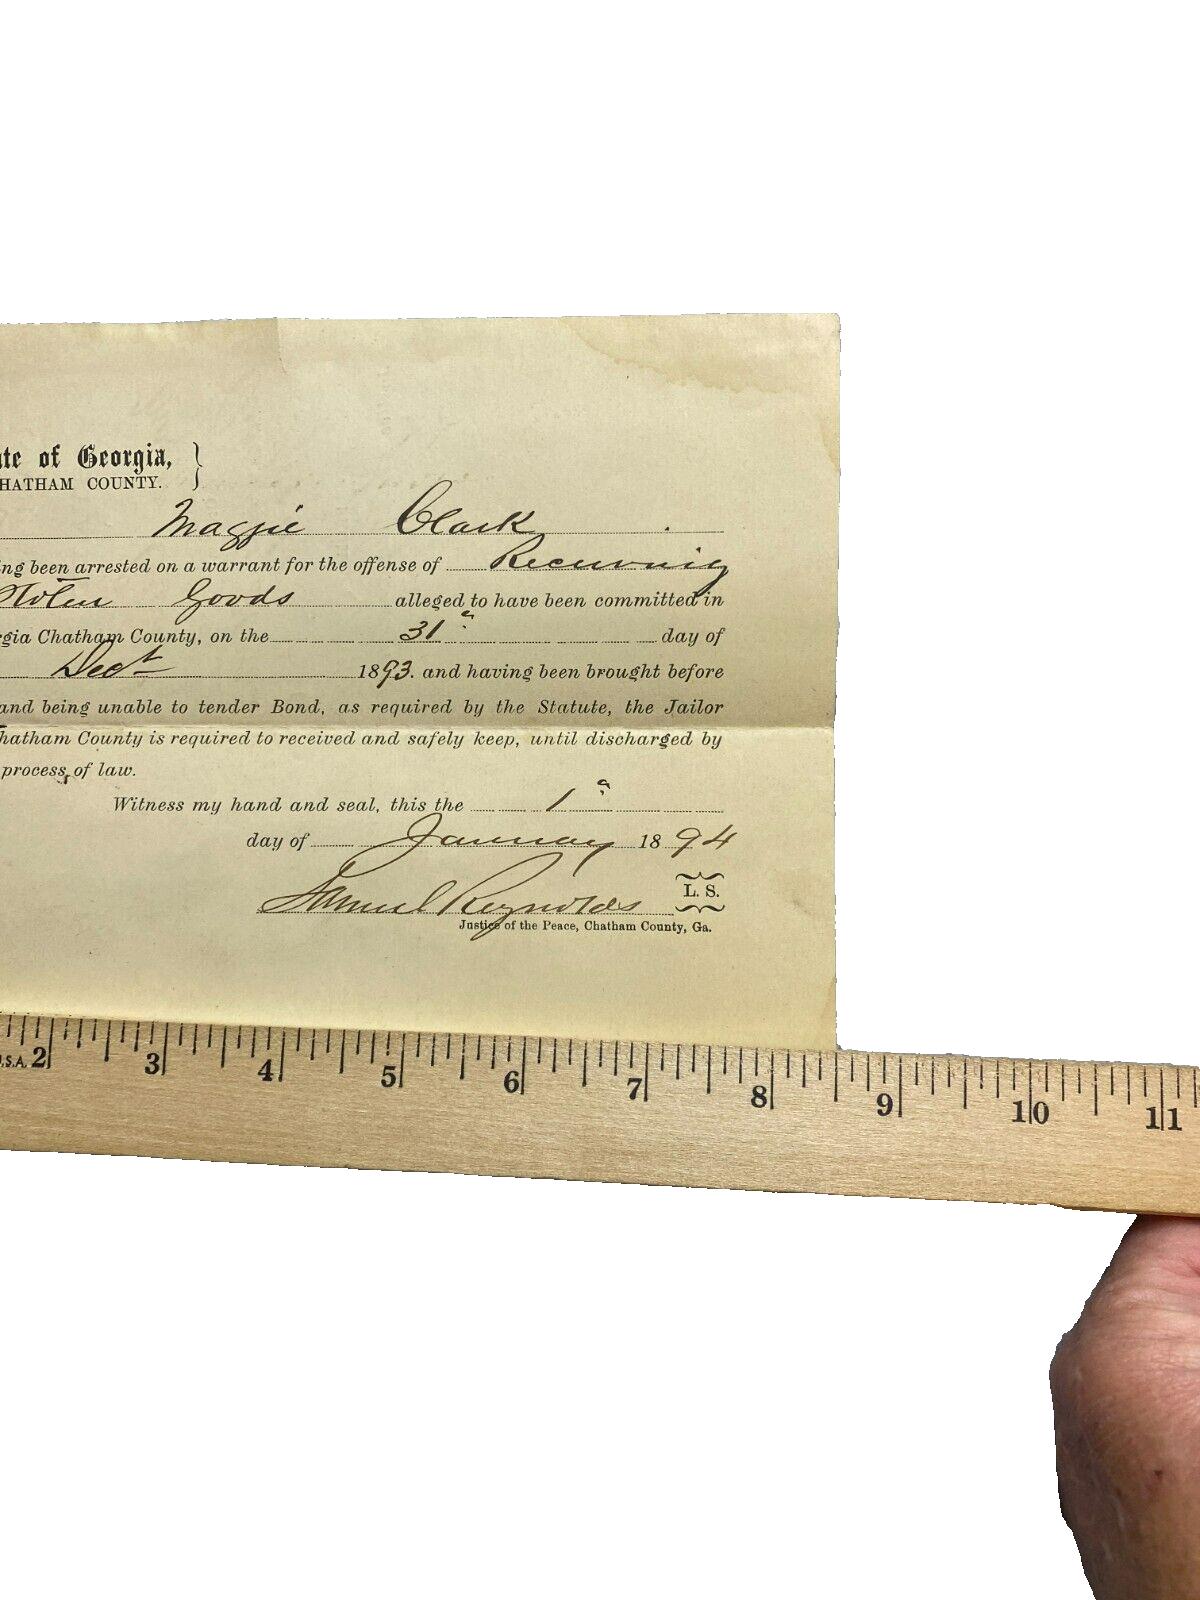 ate of Georgia,
HATHAM COUNTY.
Maggie Clark
ng been arrested on a warrant for the offense of Receiving
Stolen Goods alleged to have been committed in
rgia Chatham County, on the 31st day of
Dect 1893. and having been brought before
and being unable to tender Bond, as required by the Statute, the Jailor
hatham County is required to received and safely keep, until discharged by
process of law.
Witness my hand and seal, this the 1st
day of January 1894
Samuel Reynolds L. S.
Justice of the Peace, Chatham County, Ga.
U.S.A. 2 3 4 5 6 7 8 9 10 11